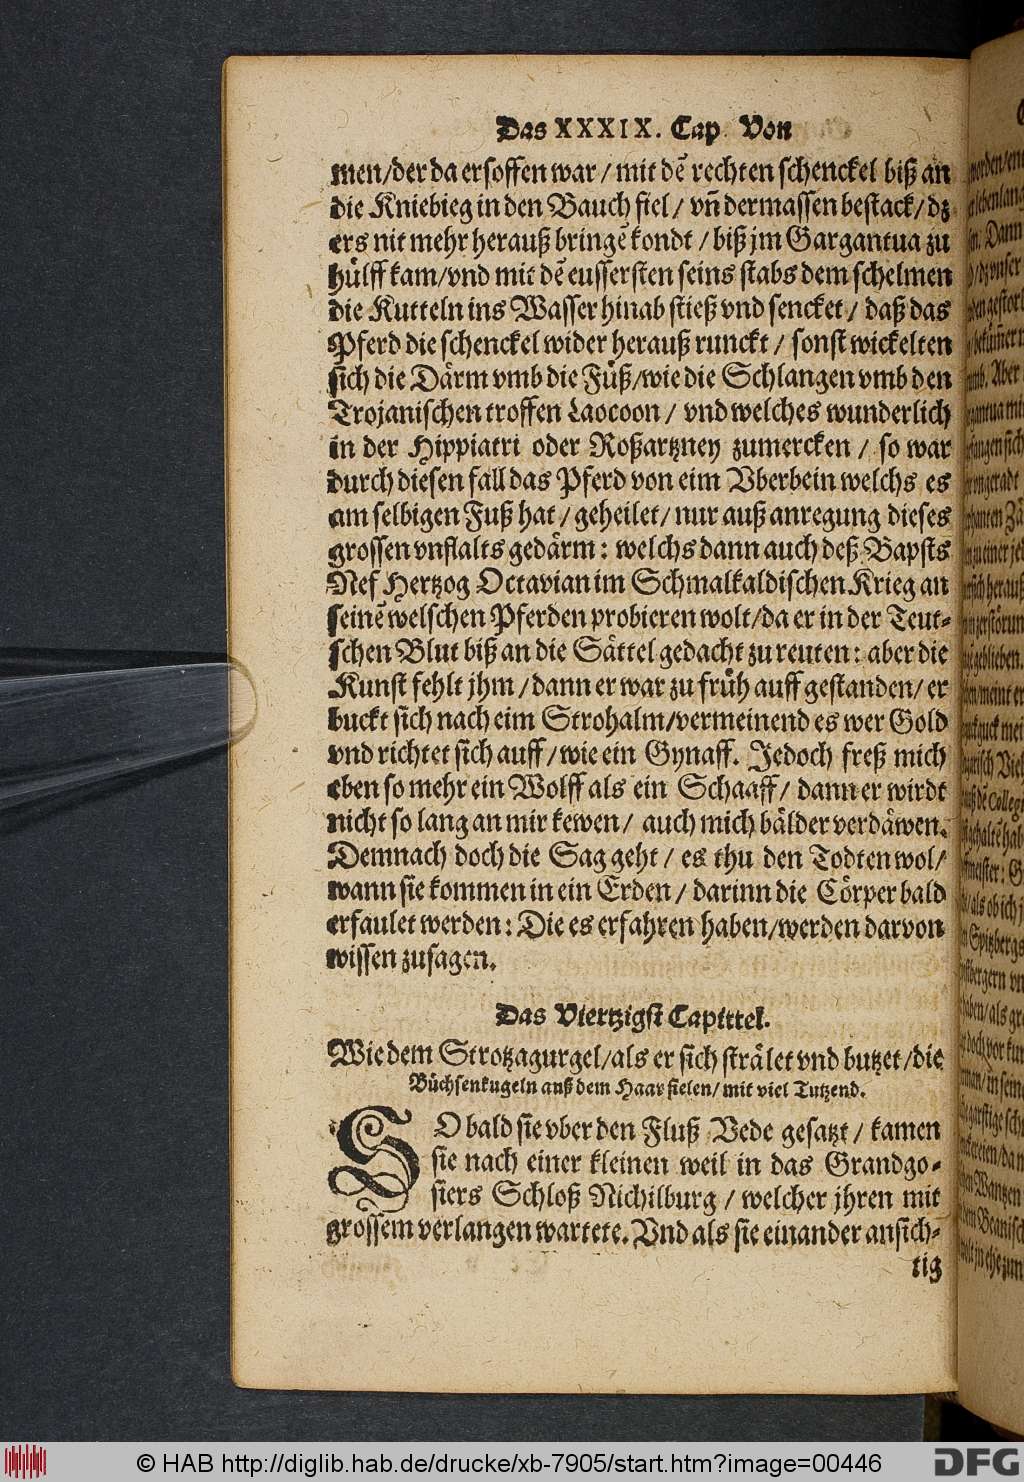 Das XXXIX. Cap. Von
men/der da ersoffen war / mit dẽ rechten schenckel biß an
die Kniebieg in den Bauch fiel / vñ dermassen bestack/ dz
ers nit mehr herauß bringẽ kondt / biß jm Gargantua zu
hülff kam/vnd mit dẽ eussersten seins stabs dem schelmen
die Kutteln ins Wasser hinab stieß vnd sencket / daß das
Pferd die schenckel wider herauß runckt / sonst wickelten
sich die Därm vmb die Füß/wie die Schlangen vmb den
Trojanischen troffen Laocoon / vnd welches wunderlich
in der Hippiatri oder Roßartzney zumercken / so war
durch diesen fall das Pferd von eim Vberbein welchs es
am selbigen Fuß hat / geheilet / nur auß anregung dieses
grossen vnflalts gedärm : welchs dann auch deß Bapsts
Nef Hertzog Octavian im Schmalkaldischen Krieg an
seinẽ welschen Pferden probieren wolt/da er in der Teut-
schen Blut biß an die Sättel gedacht zu reuten : aber die
Kunst fehlt jhm / dann er war zu früh auff gestanden/ er
buckt sich nach eim Strohalm/vermeinend es wer Gold
vnd richtet sich auff / wie ein Gynaff. Jedoch freß mich
eben so mehr ein Wolff als ein Schaaff / dann er wirdt
nicht so lang an mir kewen / auch mich bälder verdäwen.
Demnach doch die Sag geht / es thu den Todten wol/
wann sie kommen in ein Erden / darinn die Cörper bald
erfaulet werden : Die es erfahren haben/werden darvon
wissen zusagen.
Das Viertzigst Capittel.
Wie dem Strotzagurgel/als er sich strälet vnd butzet/die
Büchsenkugeln auß dem Haar fielen/ mit viel Tutzend.
SO bald sie vber den Fluß Vede gesatzt / kamen
sie nach einer kleinen weil in das Grandgo-
siers Schloß Nichilburg / welcher jhren mit
grossem verlangen wartete. Vnd als sie einander ansich-
tig
© HAB http://diglib.hab.de/drucke/xb-7905/start.htm?image=00446
DFG